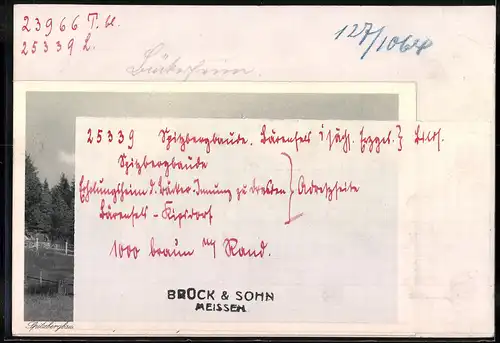 23966 T. bl.
25339 L.
127/1064
Bäckerheim.
25339 Spitzbergbaude. Bärenfels i/sächs. Erzgeb.}
Spitzbergbaude
Erholungsheim d. Bäcker-Innung zu Dresden } Adreßseite
Bärenfels - Kipsdorf
1000 braun m/ Rand.
BRÜCK & SOHN
MEISSEN.
Spitzbergbau